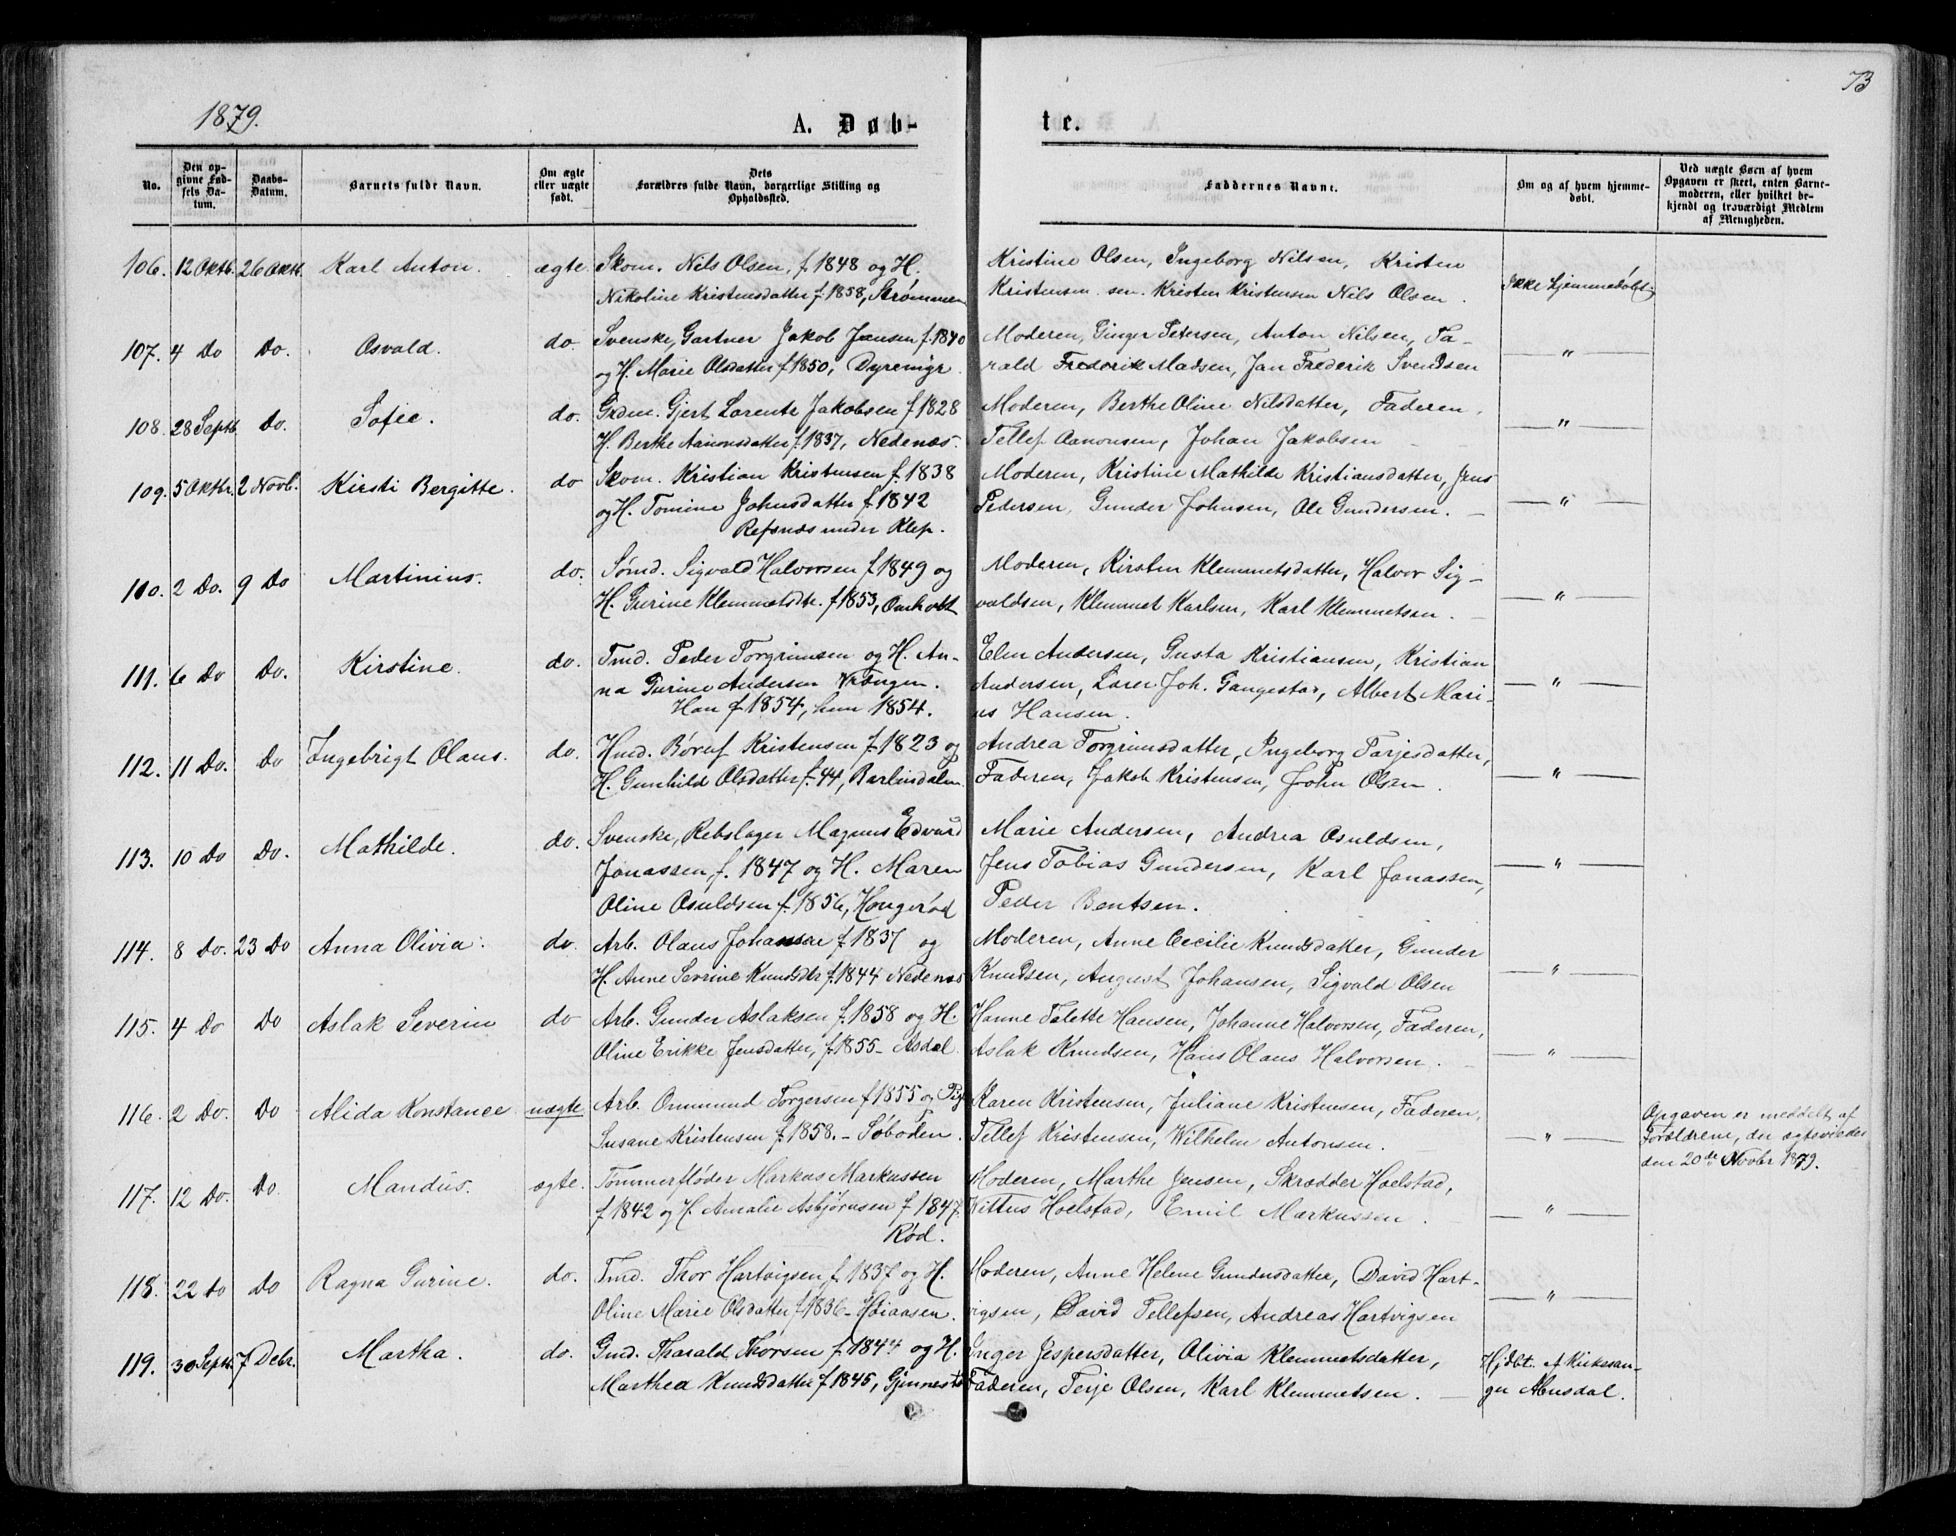 73
1879.
A. Døb-
te.
No.
Den op-
givne Fød-
sels Da-
tum.
Daabs-
Datum.
Barnets fulde Navn.
Om ægte
eller uægte
født.
Dets
Forældres fulde Navn, borgerlige Stilling og
Opholdssted.
Faddernes Navne.
Om og af hvem hjemme-
døbt.
Ved uægte Børn af hvem
Opgaven er skeet, enten Barne-
moderen, eller hvilket be-
kjendt og troværdigt Medlem
af Menigheden.
106. 12 Oktb. 26 Oktb. Karl Anton. ægte. Skom. Nils Olsen, f. 1848 og H. Kristine Olsen, Ingeborg Nilsen, Kristen
Nikoline Kristensdatter f. 1858, Strømmen Kristensen sen. Kristen Kristensen Nils Olsen. Ikke hjemmedøbt
107. 4 Do Do. Osvald. do. Svenske, Gartner Jakob Jansen f. 1840 Moderen, Ginger Petersen, Anton Nilsen, Ta-
og H. Marie Olsdatter f. 1850, Dyremyr. rald Frederik Madsen, Jan Frederik Svendsen — " —
108. 28 Septb. Do. Sofie. do. Grdm. Gjert Lorents Jakobsen f. 1828 Moderen, Berthe Oline Nilsdatter, Faderen,
H. Berthe Aanonsdatter f. 1837, Nedenæs. Tellef Aanonsen, Johan Jakobsen — " —
109. 5 Oktbr. 2 Novb. Kirsti Bergitte. do Skom. Kristian Kristensen f. 1838 Moderen, Kristine Mathilde Kristiansdatter, Jens
og H. Tomine Johnsdatter f. 1842 Pedersen, Gunder Johnsen, Ole Gundersen. — " —
Refsnæs under Klep.
110. 2 Do. 9 Do Martinius. do. Sømd. Sigvald Halvorsen f. 1849 og Moderen, Kirsten Klemmetsdatter, Halvor Sig-
H. Gurine Klemmetsdtr. f. 1853, Omholt valdsen, Klemmet Karlsen, Karl Klemmetsen. — " —
111. 6 Do Do. Kirstine. do. Tmd. Peder Torgrimsen og H. An- Elen Andersen, Gusta Kristiansen, Kristian
na Gurine Andersen Vrængen. Andersen, Joh. Gangestad, Albert Mari- — " —
Han f. 1854, hun 1854. us Hansen.
112. 11 Do. Do Ingebrigt Olaus. do. Hmd. Børuf Kristensen f. 1823 og Andrea Torgrimsdatter, Ingeborg Tarjesdatter,
H. Gunhild Olsdatter f. 44, Barlindalen Faderen, Jakob Kristensen, John Olsen. — " —
113. 10 Do Do. Mathilde. do. Svenske, Rebslager Magnus Edvard Marie Andersen, Andrea Osuldsen,
Jonassen f. 1847 og H. Maren Jens Tobias Gundersen, Karl Jonassen, — " —
Oline Osuldsen f. 1856, Hongerød Peder Bentsen.
114. 8 Do. 23 Do Anna Olivia. do. Arb. Olaus Johansen f. 1837 og Moderen, Anne Cecilie Knudsdatter, Gunder
H. Anne Serine Knudsdtr f. 1844 Nedenæs Knudsen, August Johansen, Sigvald Olsen — " —
115. 4 Do Do Aslak Severin do Arb. Gunder Aslaksen f. 1858 og H. Hanne Talette Hansen, Johanne Halvorsen, Faderen,
Oline Erikke Jensdatter, f. 1855 - Asdal. Aslak Knudsen, Hans Olaus Halvorsen. — " —
116. 2 Do. Do Alida Konstance uægte Arb. Ommund Torgersen f. 1855 og Pig. Karen Kristensen, Juliane Kristensen, Faderen,
Susane Kristensen f. 1858. - Søboden. Tellef Kristensen, Wilhelm Antonsen. — " — Opgaven er meddelt af
Forældrene, der ægtevviedes
den 20de Novbr 1879.
117. 12 Do. Do Mandus. ægte. Tømmerfløder Markus Markussen Moderen, Marthe Jensen, Skrædder Hoelstad,
f. 1842 og H. Amalie Asbjørnsen f. 1847. Vittus Hoelstad, Emil Markussen. — " —
Rød.
118. 22 Do Do Ragna Gurine. do. Tmd. Thor Hartvigsen f. 1837 og H. Moderen, Anne Helene Gundersdatter, David Hart-
Oline Marie Olsdatter f. 1836 - Høiaasen. vigsen, David Tellefsen, Andreas Hartvigsen — " —
119. 30 Septb. 7 Debr. Martha. do. Gmd. Tharald Thorsen f. 1844 og H. Inger Jespersdatter, Olivia Klemmetsdatter, Hjdbt. af Kirkesan-
Marthea Knudsdatter f. 1845, Gjennestø Faderen, Terje Olsen, Karl Klemmetsen. ger Aamsdal.